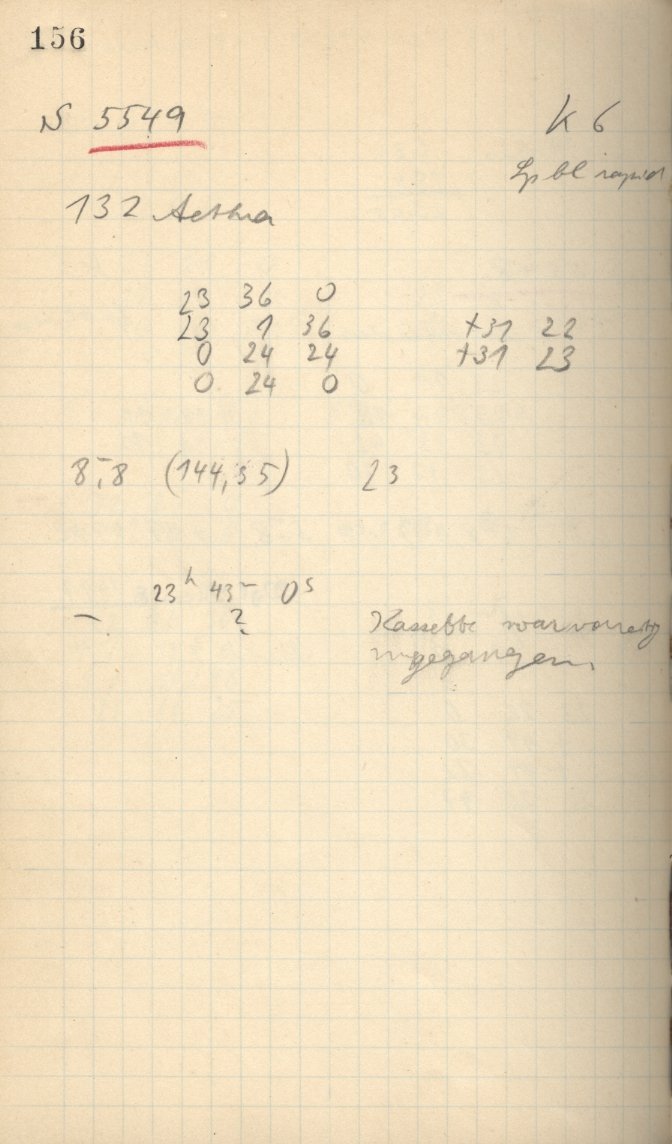 156
N 5549 K 6
Sp bl rapid
132 Aethra
23 36 0
23 1 36 +31 22
0 24 24 +31 23
0 24 0
8,8 (144,35) 23
23h 43m 0s
– ? Kassette war
gegangen.